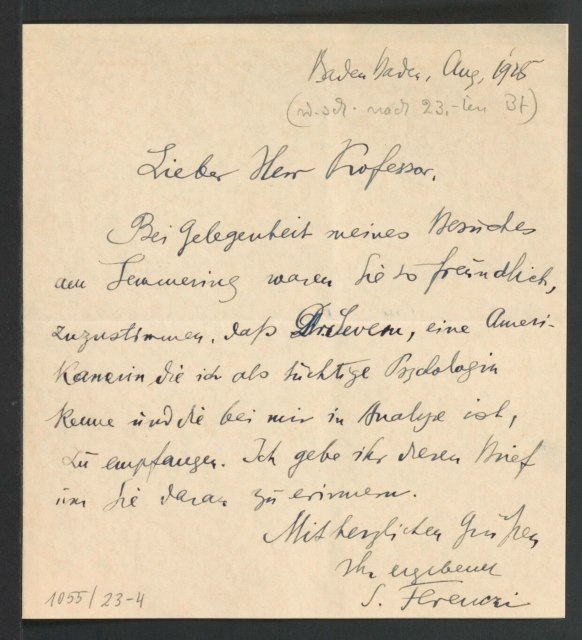 Baden Baden, Aug, 1925
nach 23.-ten Bf)
Lieber Herr Professor.
Bei Gelegenheit meines Besuches
am Semmering waren Sie so freundlich,
zuzustimmen, daß Dr Severn, eine Ameri-
kanerin die ich als tüchtige Psychologin
kenne und die bei mir in Analyse ist,
zu empfangen. Ich gebe ihr diesen Brief
um Sie daran zu erinnern.
Mit herzlichen Grüßen
Ihr ergebener
S. Ferenczi
1055/23-4